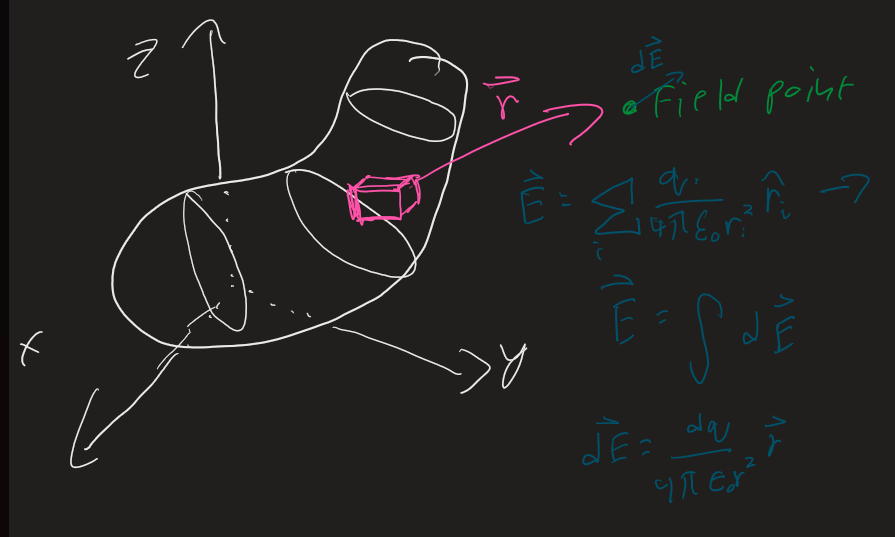 z
dE⃗
r⃗
Field point
E⃗ = ∑ᵢ qᵢ / 4πε₀rᵢ² r̂ᵢ →
E⃗ = ∫ dE⃗
x
y
dE⃗ = dq / 4πε₀r² r⃗